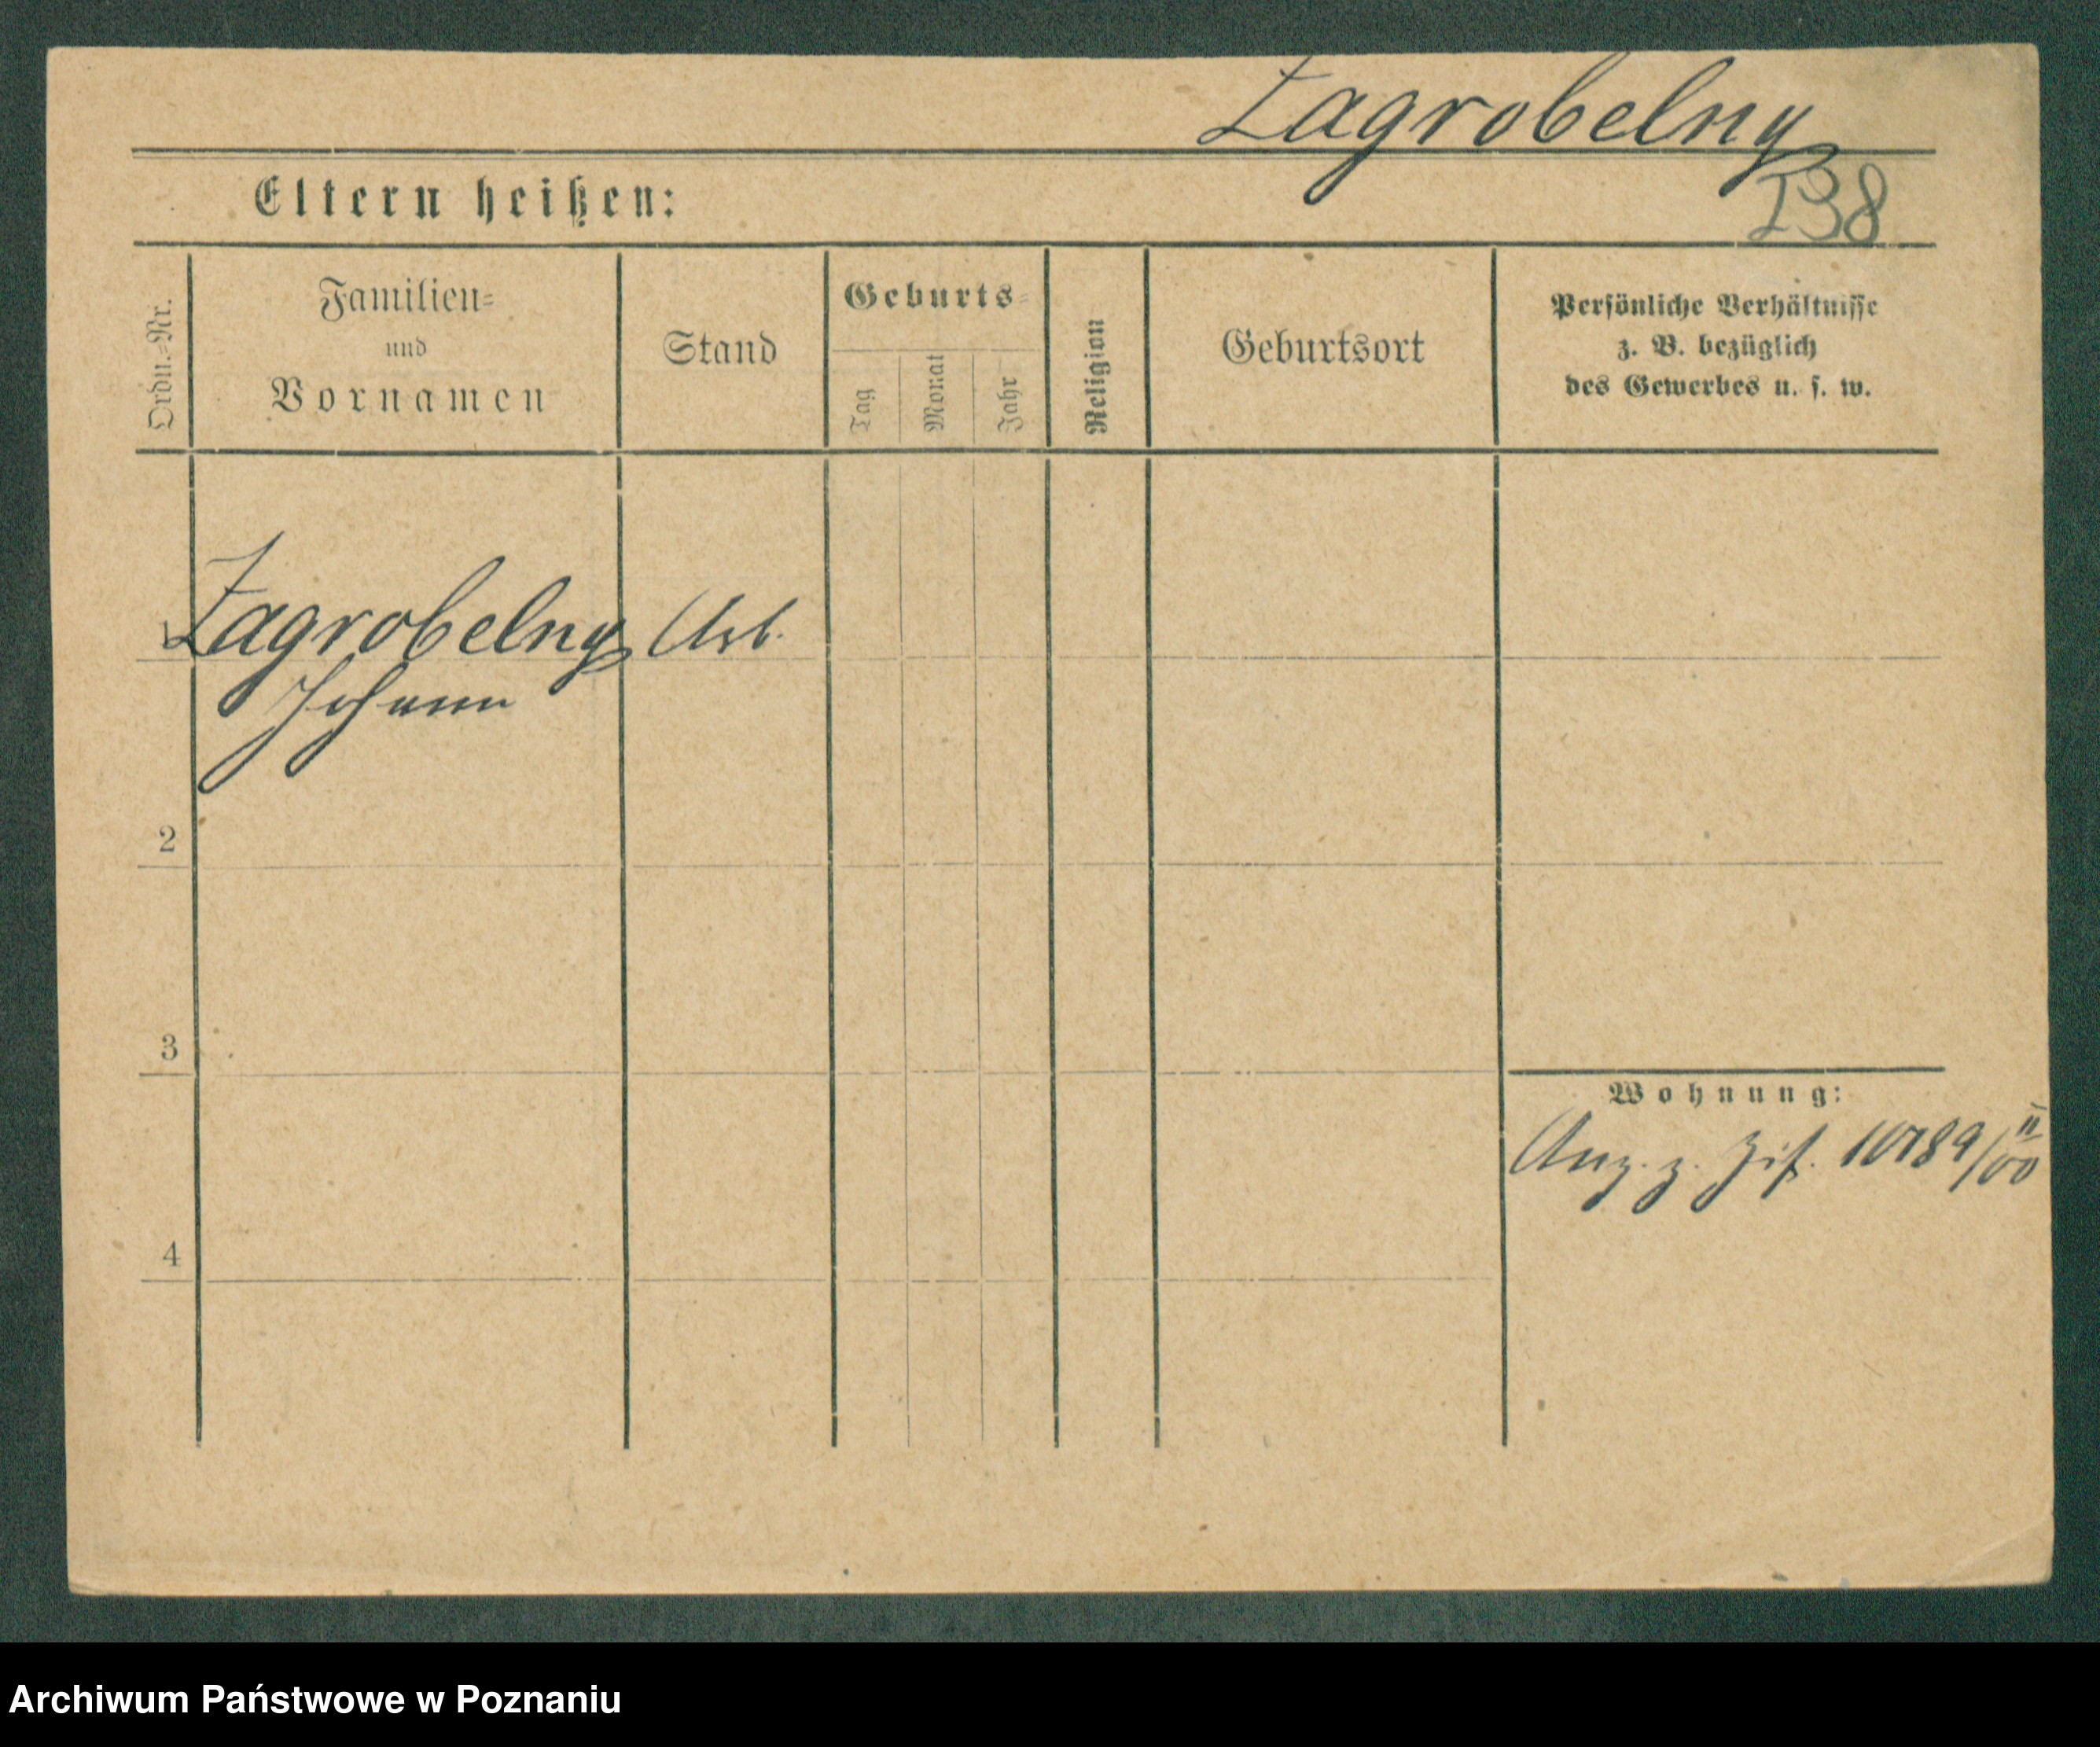 Zagrobelny
Eltern heißen:
138
Ordn.=Nr.
Familien=
und
Vornamen
Stand
Geburts=
Tag
Monat
Jahr
Religion
Geburtsort
Persönliche Verhältnisse
z. B. bezüglich
des Gewerbes u. s. w.
1
Zagrobelny Arb.
Johann
2
3
4
Wohnung:
Anz. z.
Archiwum Państwowe w Poznaniu